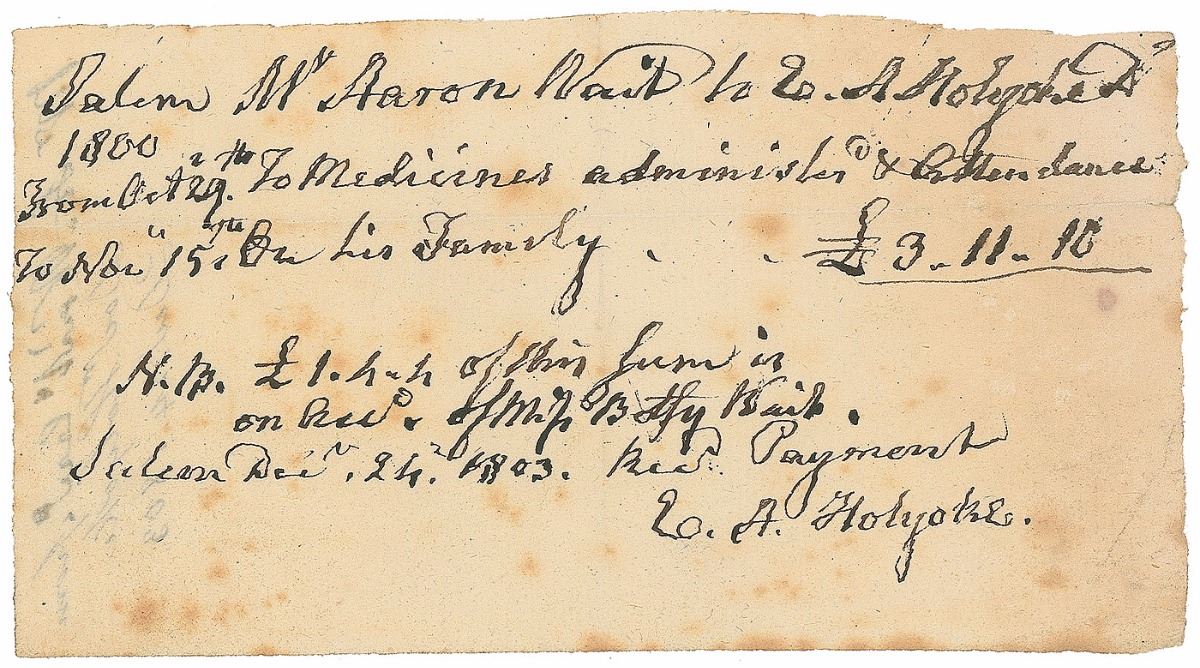 Salem Mr Aaron Wait to E. A Holyoke Dr
1800
From Oct 29th. To Medicines administerd & Attendance
To Novr 15th On his Family . . £ 3 .. 11 .. 10
N.B. £ 1.4..4 of this Sum is
on of Miss Betsy Wait.
Salem Decr. 24. 1803. Recd. Payment
E. A. Holyoke.